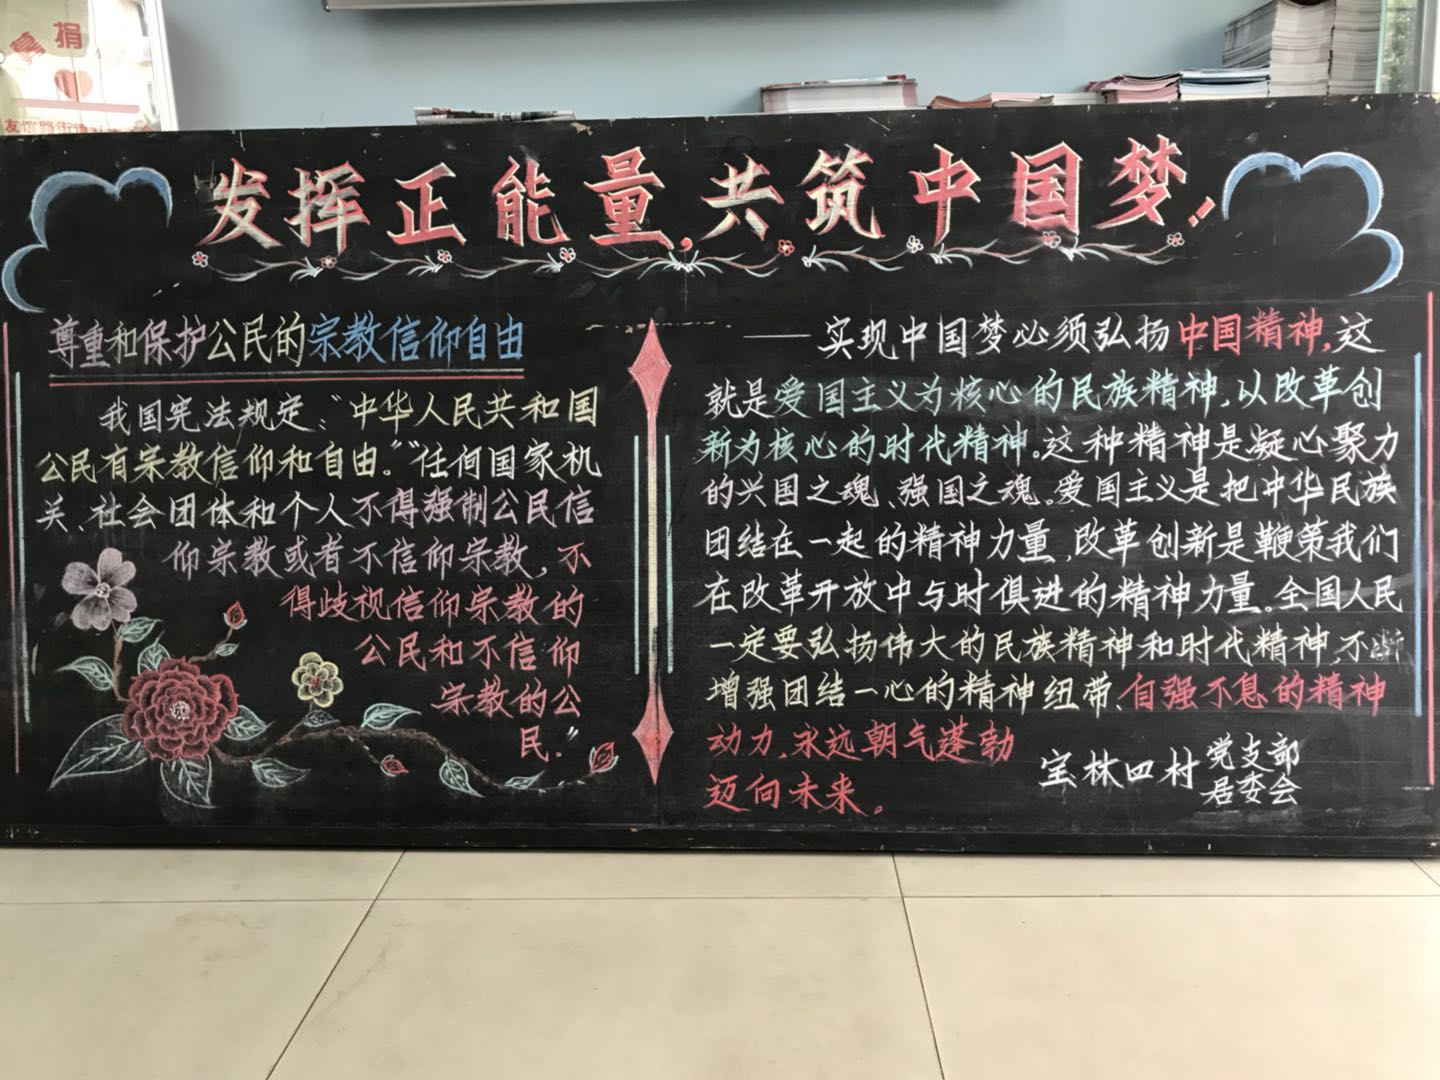 捐
拿
友谊路街道
发挥正能量,共筑中国梦!
尊重和保护公民的宗教信仰自由
我国宪法规定:“中华人民共和国
公民有宗教信仰和自由。”“任何国家机
关、社会团体和个人不得强制公民信
仰宗教或者不信仰宗教,不
得歧视信仰宗教的
公民和不信仰
宗教的公
民。”
——实现中国梦必须弘扬中国精神,这
就是爱国主义为核心的民族精神,以改革创
新为核心的时代精神。这种精神是凝心聚力
的兴国之魂、强国之魂。爱国主义是把中华民族
团结在一起的精神力量,改革创新是鞭策我们
在改革开放中与时俱进的精神力量。全国人民
一定要弘扬伟大的民族精神和时代精神,不断
增强团结一心的精神纽带、自强不息的精神
动力,永远朝气蓬勃
迈向未来。
宝林四村党支部
居委会